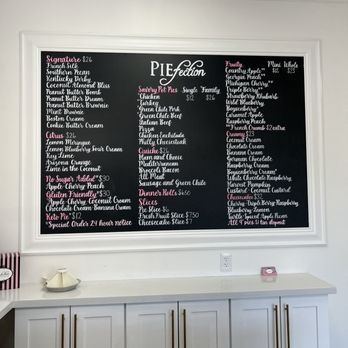 PIEfection
Signature $26
French Silk
Southern Pecan
Kentucky Derby
Coconut Almond Bliss
Peanut Butter Bomb
Peanut Butter Dream
Peanut Butter Brownie
Mint Brownie
Boston Cream
Cookie Butter Cream
Citrus $26
Lemon Meringue
Lemon Blueberry Sour Cream
Key Lime
Arizona Orange
Lime in the Coconut
No Sugar Added* $30
Apple Cherry Peach
Gluten Friendly* $30
Apple Cherry Coconut Cream
Chocolate Cream Banana Cream
Keto Pie* $12
*Special Order 24 hour notice
Savory Pot Pies Single Family
Chicken $12 $26
Turkey
Green Chile Pork
Green Chile Beef
Italian Beef
Pizza
Chicken Enchilada
Philly Cheesesteak
Quiche $25
Ham and Cheese
Mediterranean
Broccoli Bacon
All Meat
Sausage and Green Chile
Dinner Rolls $4.50
Slices
Pie Slice $6
Fresh Fruit Slice $7.50
Cheesecake Slice $7
Fruity Mini Whole
Country Apple** $23
Georgia Peach**
Michigan Cherry**
Triple Berry**
Strawberry Rhubarb
Wild Blueberry
Boysenberry*
Caramel Apple
Raspberry Peach
**French Crumb $2 extra
Creamy $23
Coconut
Chocolate Cream
Banana Cream
German Chocolate
Raspberry Cream
Boysenberry Cream*
Vanilla Caramel
Chocolate Raspberry
Harvest Pumpkin
Custard Coconut Custard
Cheesecake $32
Cherry Triple Berry Raspberry
Blueberry Lemon
Turtle Special Apple Pecan